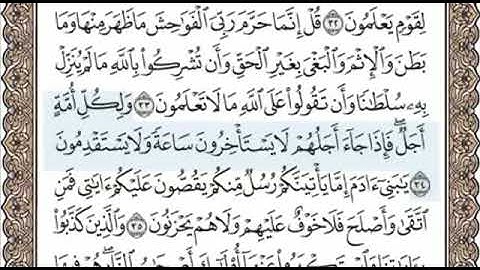 لِقَوْمٍ يَعْلَمُونَ ٣٢ قُلْ إِنَّمَا حَرَّمَ رَبِّيَ الْفَوَاحِشَ مَا ظَهَرَ مِنْهَا وَمَا
بَطَنَ وَالْإِثْمَ وَالْبَغْيَ بِغَيْرِ الْحَقِّ وَأَن تُشْرِكُوا بِاللَّهِ مَا لَمْ يُنَزِّلْ
بِهِ سُلْطَٰنًا وَأَن تَقُولُوا عَلَى اللَّهِ مَا لَا تَعْلَمُونَ ٣٣ وَلِكُلِّ أُمَّةٍ
أَجَلٌ فَإِذَا جَاءَ أَجَلُهُمْ لَا يَسْتَأْخِرُونَ سَاعَةً وَلَا يَسْتَقْدِمُونَ
٣٤ يَٰبَنِي ءَادَمَ إِمَّا يَأْتِيَنَّكُمْ رُسُلٌ مِّنكُمْ يَقُصُّونَ عَلَيْكُمْ ءَايَٰتِي فَمَنِ
اتَّقَىٰ وَأَصْلَحَ فَلَا خَوْفٌ عَلَيْهِمْ وَلَا هُمْ يَحْزَنُونَ ٣٥ وَالَّذِينَ كَذَّبُوا